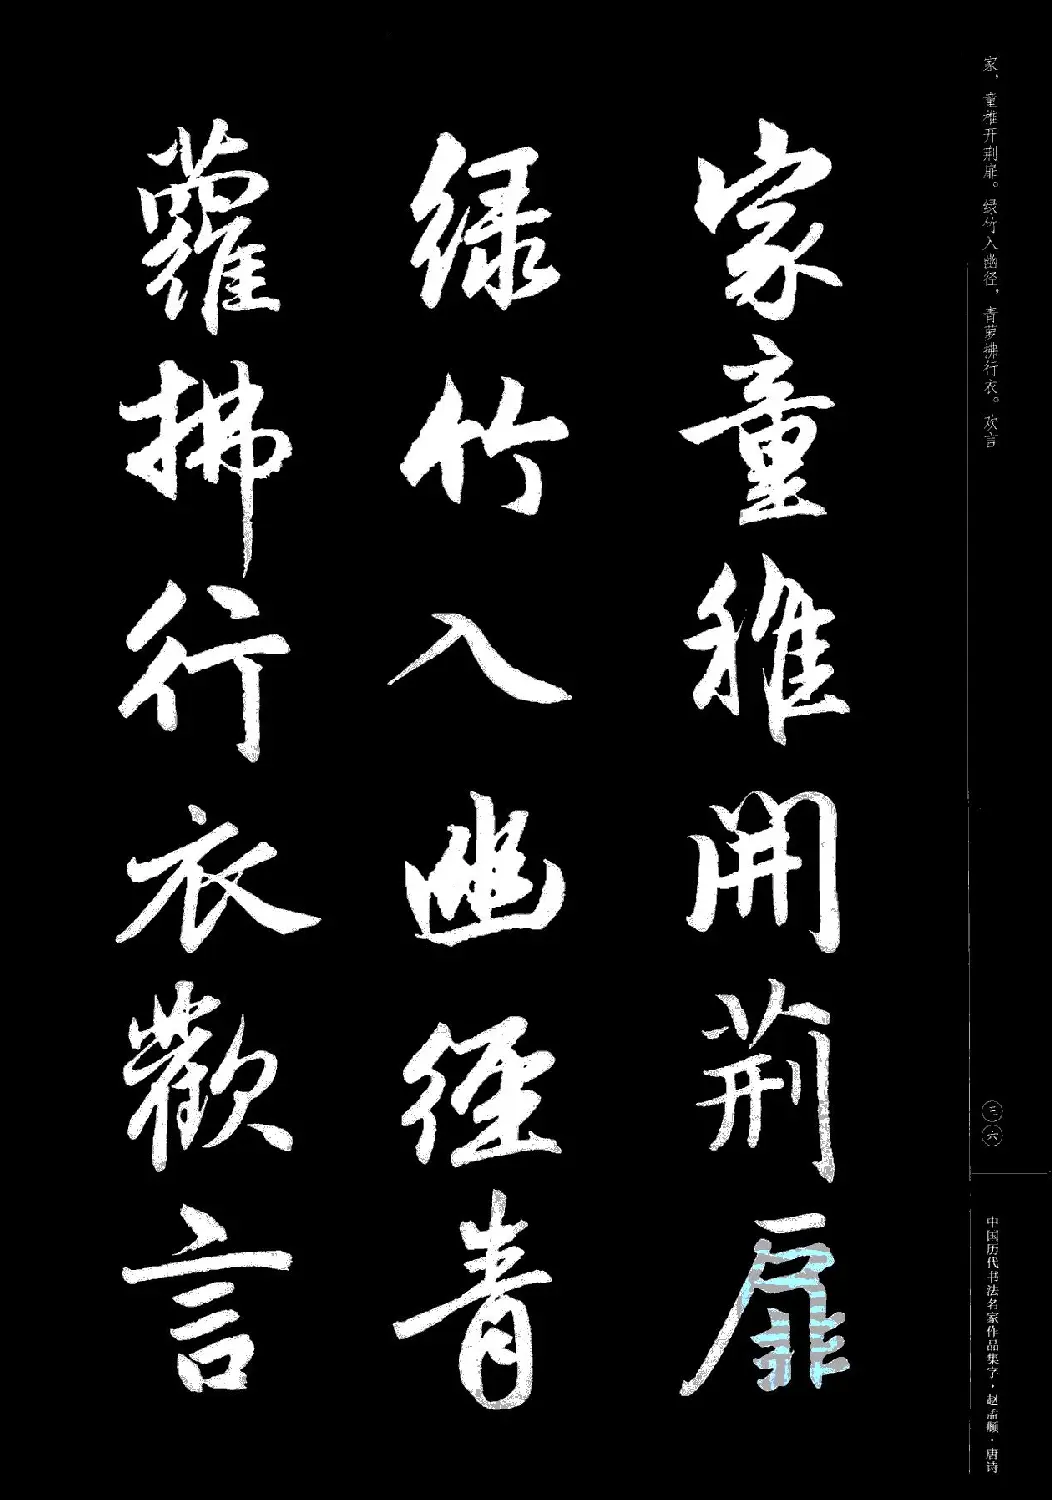 家、童稚开荆扉。绿竹入幽径，青萝拂行衣。欢言
家童稚開荆扉
绿竹入幽徑青
蘿拂行衣歡言
三六
中国历代书法名家作品集字·赵孟頫·唐诗